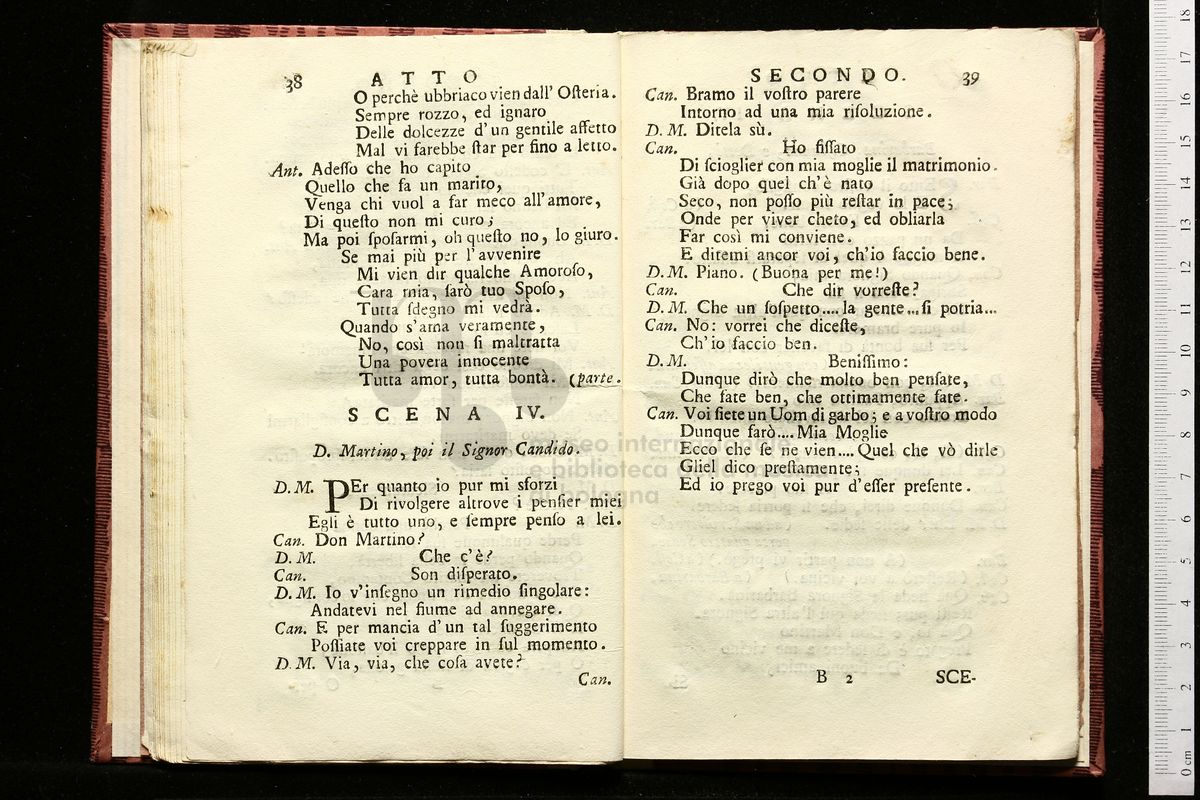 38 ATTO
O perchè ubbriaco vien dall' Oſteria.
Sempre rozzo, ed ignaro
Delle dolcezze d'un gentile affetto
Mal vi farebbe ſtar per fino a letto.
Ant. Adeſſo che ho capito
Quello che fa un marito,
Venga chi vuol a far meco all'amore,
Di queſto non mi curo;
Ma poi ſpoſarmi, oh queſto no, lo giuro.
Se mai più per l'avvenire
Mi vien dir qualche Amoroſo,
Cara mia, ſarò tuo Spoſo,
Tutta ſdegno mi vedrà.
Quando s'ama veramente,
No, così non ſi maltratta
Una povera innocente
Tutta amor, tutta bontà. (parte.
SCENA IV.
D. Martino, poi il Signor Candido.
D. M. PEr quanto io pur mi sforzi
Di rivolgere altrove i penſier miei
Egli è tutto uno, e ſempre penſo a lei.
Can. Don Martino?
D. M. Che c'è?
Can. Son diſperato.
D. M. Io v'inſegno un rimedio ſingolare:
Andatevi nel fiume ad annegare.
Can. E per mancia d'un tal ſuggerimento
Poſſiate voi creppare in ſul momento.
D. M. Via, via, che coſa avete?
Can.
SECONDO. 39
Can. Bramo il voſtro parere
Intorno ad una mia riſoluzione.
D. M. Ditela sù.
Can. Ho fiſſato
Di ſcioglier con mia moglie il matrimonio.
Già dopo quel ch'è nato
Seco, non poſſo più reſtar in pace;
Onde per viver cheto, ed obliarla
Far così mi conviene.
E ditemi ancor voi, ch'io faccio bene.
D. M. Piano. (Buona per me!)
Can. Che dir vorreſte?
D. M. Che un ſoſpetto.... la gente... ſi potria...
Can. No: vorrei che diceſte,
Ch'io faccio ben.
D. M. Beniſſimo:
Dunque dirò che molto ben penſate,
Che fate ben, che ottimamente fate.
Can. Voi ſiete un Uom di garbo; e a voſtro modo
Dunque farò.... Mia Moglie
Ecco che ſe ne vien.... Quel che vò dirle
Gliel dico preſtamente;
Ed io prego voi pur d'eſſer preſente.
B 2 SCE-
museo internazionale
e biblioteca della musica
di bologna
0 cm 1 2 3 4 5 6 7 8 9 10 11 12 13 14 15 16 17 18